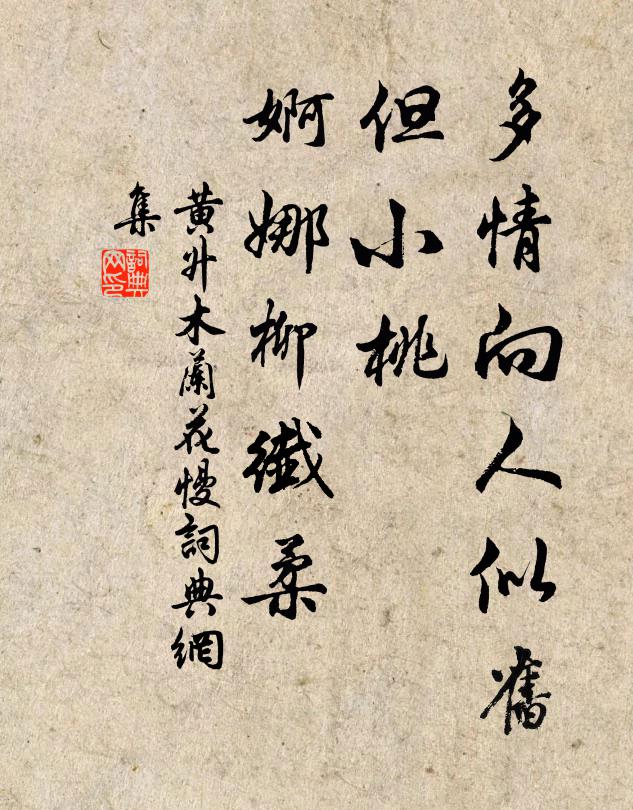 多情向人似舊
但小桃
婀娜柳纖柔
黄升木蘭花慢詞典網
集
詞典
网印